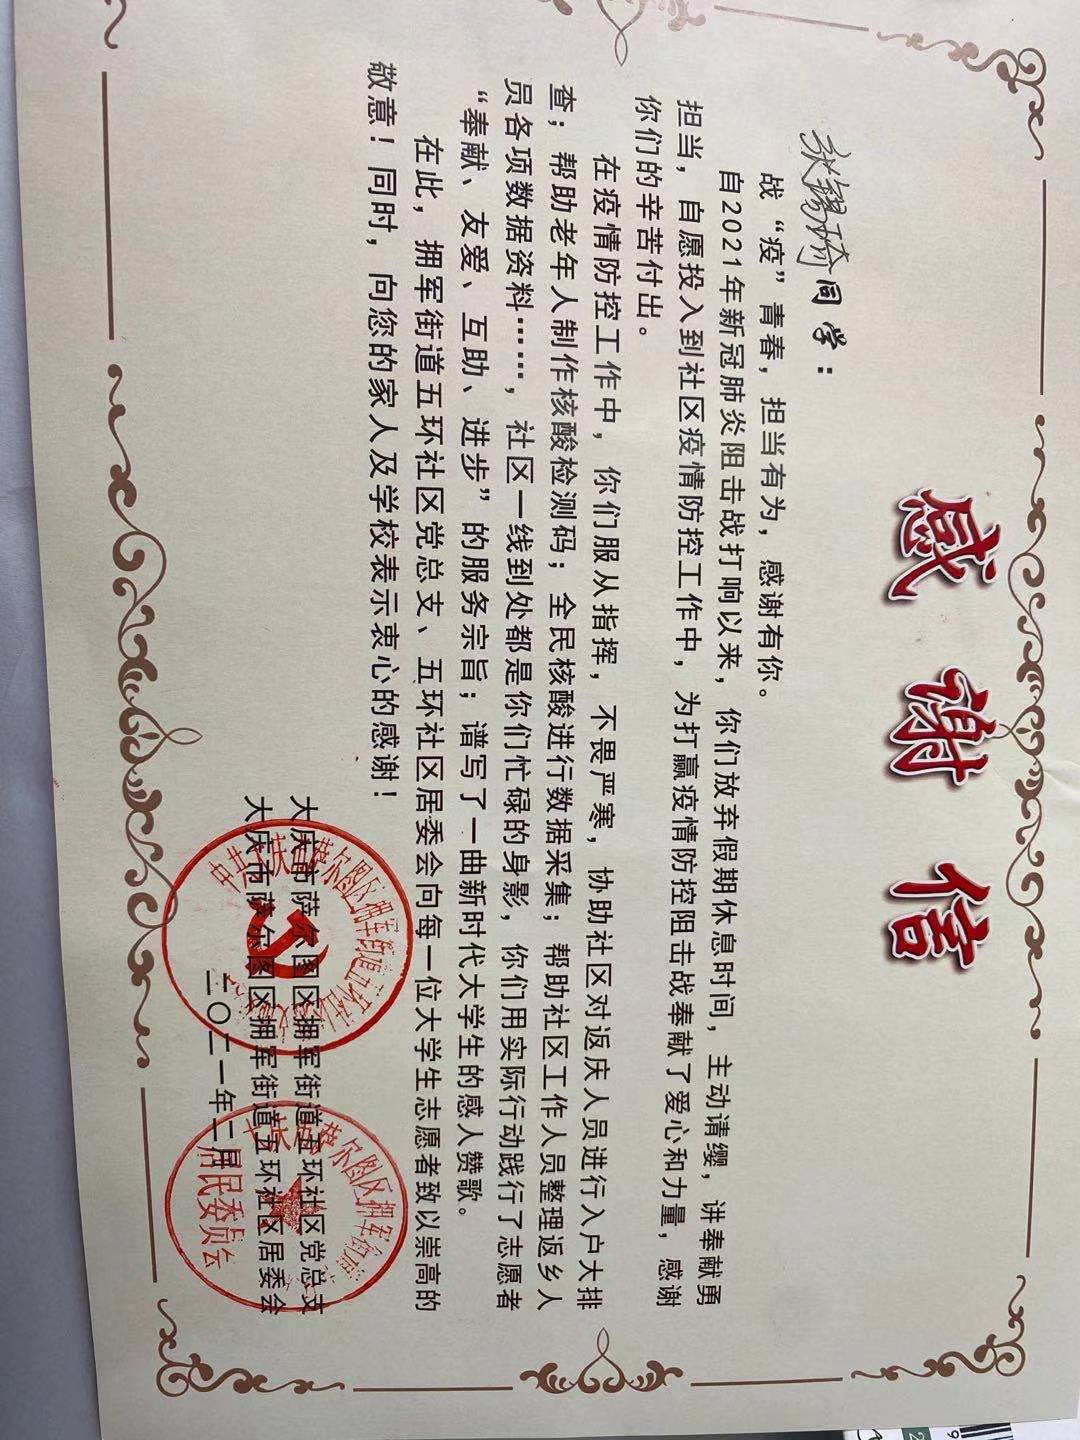 感谢信
张锡琦同学：
战“疫”青春，担当有为，感谢有你。
自2021年新冠肺炎阻击战打响以来，你们放弃假期休息时间，主动请缨，讲奉献勇
担当，自愿投入到社区疫情防控工作中，为打赢疫情防控阻击战奉献了爱心和力量，感谢
你们的辛苦付出。
在疫情防控工作中，你们服从指挥，不畏严寒，协助社区对返庆人员进行入户大排
查；帮助老年人制作核酸检测码；全民核酸进行数据采集；帮助社区工作人员整理返乡人
员各项数据资料……，社区一线到处都是你们忙碌的身影，你们用实际行动践行了志愿者
“奉献、友爱、互助、进步”的服务宗旨；谱写了一曲新时代大学生的感人赞歌。
在此，拥军街道五环社区党总支、五环社区居委会向每一位大学生志愿者致以崇高的
敬意！同时，向您的家人及学校表示衷心的感谢！
大庆市萨尔图区拥军街道五环社区党总支
大庆市萨尔图区拥军街道五环社区居委会
二〇二一年二月
居民委员会